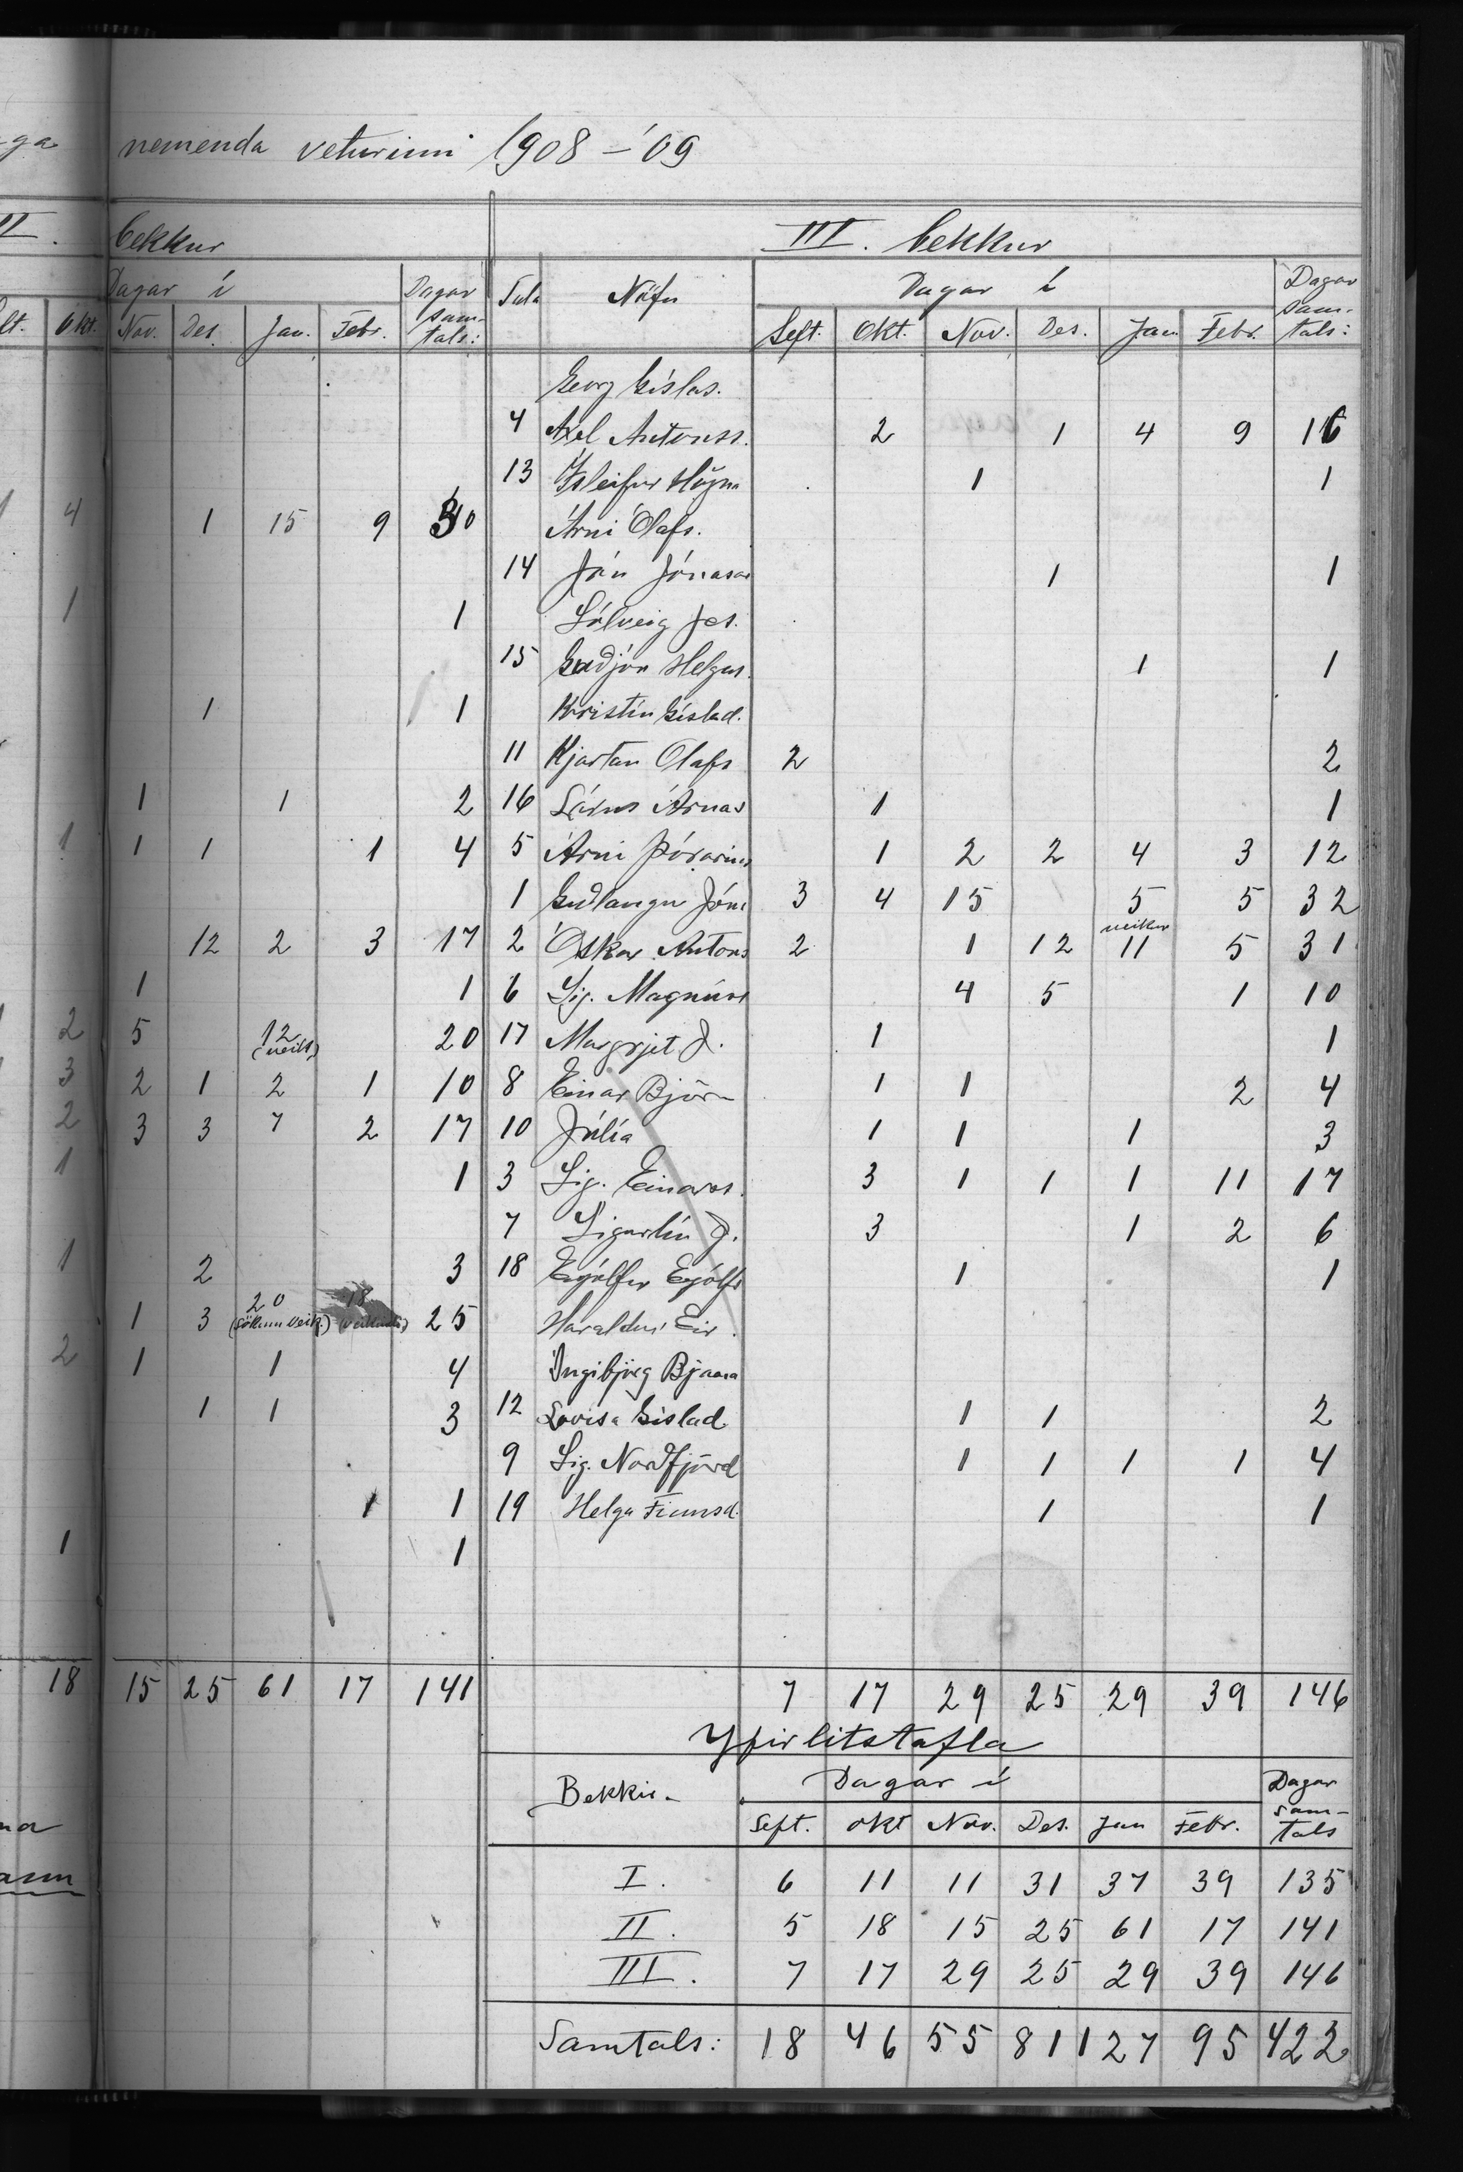 nemenda veturinn 1908 – '09
II. bekkur
III. bekkur
Dagar í Dagar sam-tals: Tala Nöfn Dagar í Dagar sam-tals:
Okt. Nov. Des. Jan. Febr. Sept. Okt. Nov. Des. Jan Febr.
Georg Gíslas.
4 Axel Antonss. 2 1 4 9 16
13 Ísleifur Högna 1 1
4 1 15 9 30 Árni Ólafs.
14 Jón Jónasar 1 1
1 1 Sólveig Jes.
15 Guðjón Helgas. 1 1
1 1 Kristín Gíslad.
11 Kjartan Ólafs 2 2
1 1 2 16 Lárus Árnas 1 1
1 1 1 1 4 5 Árni Þórarins 1 2 2 4 3 12
1 Guðlaugur Jóns 3 4 15 5 5 32
12 2 3 17 2 Óskar Antons 2 1 12 veikur 11 5 31
1 1 6 Sig. Magnúss 4 5 1 10
2 5 12 (veik) 20 17 Margrjet J. 1 1
3 2 1 2 1 10 8 Einar Björn 1 1 2 4
2 3 3 7 2 17 10 Júlía 1 1 1 3
1 1 3 Sig. Einarss. 3 1 1 1 11 17
7 Sigurlín J. 3 1 2 6
1 2 3 18 Eyjólfur Eyjólfs 1 1
1 3 20 (sökum veik.) 18 25 Haraldur Eir.
2 1 1 4 Ingibjörg Bjarna
1 1 3 12 Lovísa Gíslad. 1 1 2
9 Sig. Norðfjörd 1 1 1 1 4
1 1 19 Helga Finnsd. 1 1
1 1
18 15 25 61 17 141 7 17 29 25 29 39 146
Yfirlitstafla
Bekkir Dagar í Dagar sam-tals
Sept. Okt Nov. Des. Jan Febr.
I. 6 11 11 31 37 39 135
II. 5 18 15 25 61 17 141
III. 7 17 29 25 29 39 146
Samtals: 18 46 55 81 127 95 422